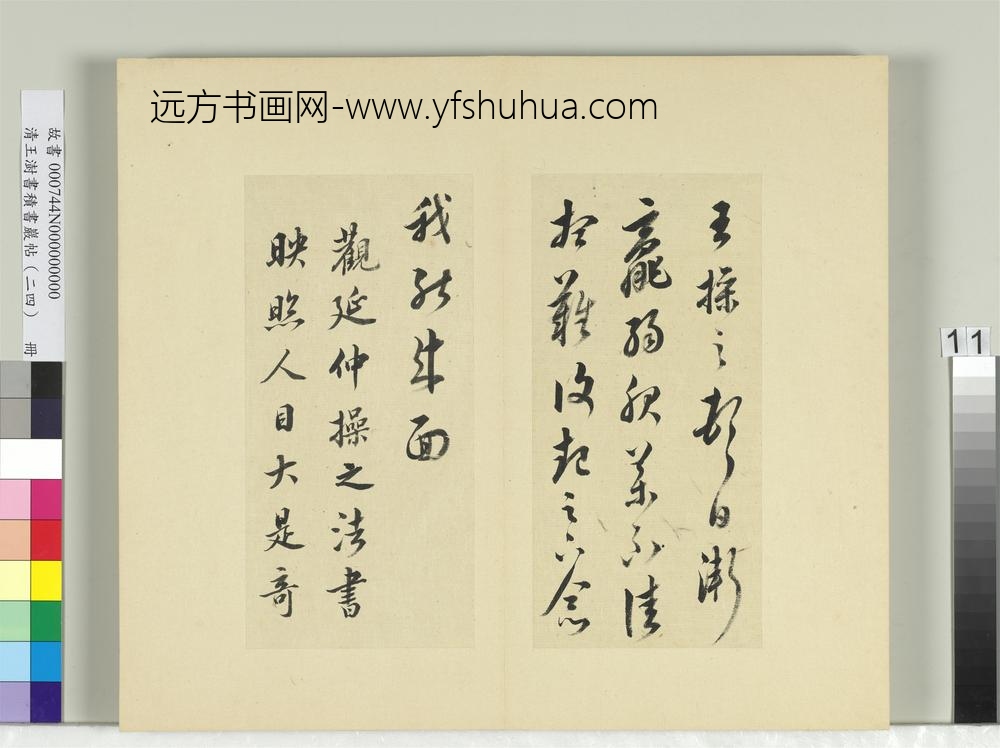 远方书画网-www.yfshuhua.com
故書 000744N000000000
清王澍書積書巖帖（二四） 冊
11
王操之 頓日漸
羸弱 服藥不佳
難復 起之
我 面
觀延仲操之法書
映照人目大是奇